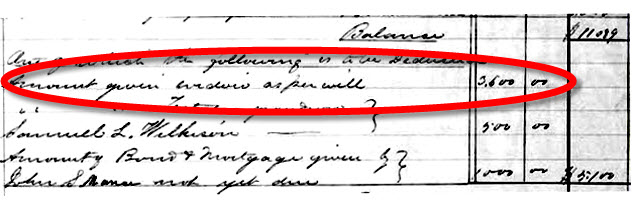 Balance $11089
of which the following is to be Deducted
Amount given widow as per will 3,600 00
Samuel L. Wilkison — 500 00
Amount of Bond & Mortgage given by
John S not yet due 1000 00 $5,100